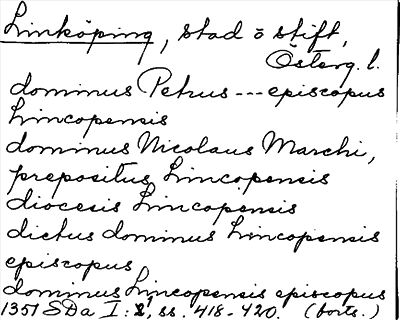 Linköping, stad o stift,
Österg. l.
dominus Petrus --- episcopus
Lincopensis
dominus Nicolaus Marchi,
prepositus Lincopensis
diocesis Lincopensis
dictus dominus Lincopensis
episcopus
dominus Lincopensis episcopus
1351 SDa I: 2, ss. 418-420. (forts.)